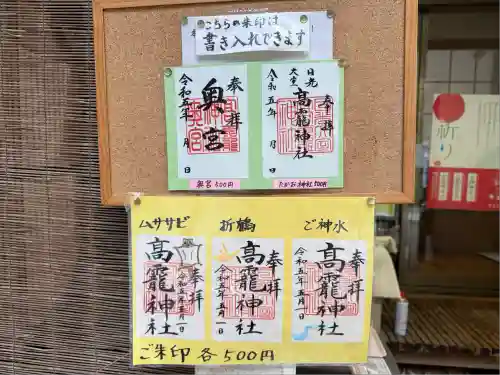 こちらの朱印は
書き入れできます
奉拝
奥宮
令和五年 月 日
奥宮 500円
奉拝
高龗神社
日光
大室
令和五年 月 日
たかお神社 500円
祈り
ムササビ
折鶴
ご神水
奉拝
高龗神社
令和五年五月一日
奉拝
高龗神社
令和五年五月一日
奉拝
高龗神社
令和五年五月一日
ご朱印 各500円